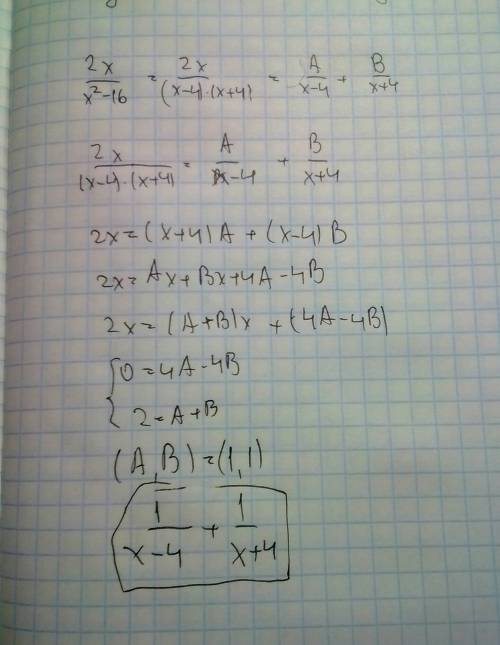 2x/(x²-16) = 2x/((x-4)·(x+4)) = A/(x-4) + B/(x+4)
2x/((x-4)·(x+4)) = A/(x-4) + B/(x+4)
2x=(x+4)A + (x-4)B
2x=Ax+Bx+4A-4B
2x=(A+B)x+(4A-4B)
{0=4A-4B
2=A+B
(A,B)=(1,1)
1/(x-4) + 1/(x+4)